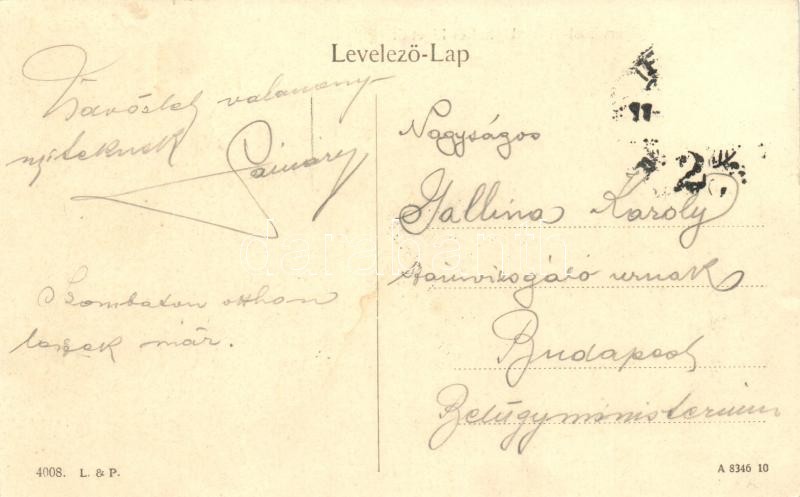 Levelező-Lap
Üdvözlet valameny-
nyiteknek
Szombaton otthon
leszek már.
Nagyságos
Gallina Károly
Számvizsgáló urnak
Budapest
Belügyministerium
4008. L. & P.
A 8346 10
darabanth